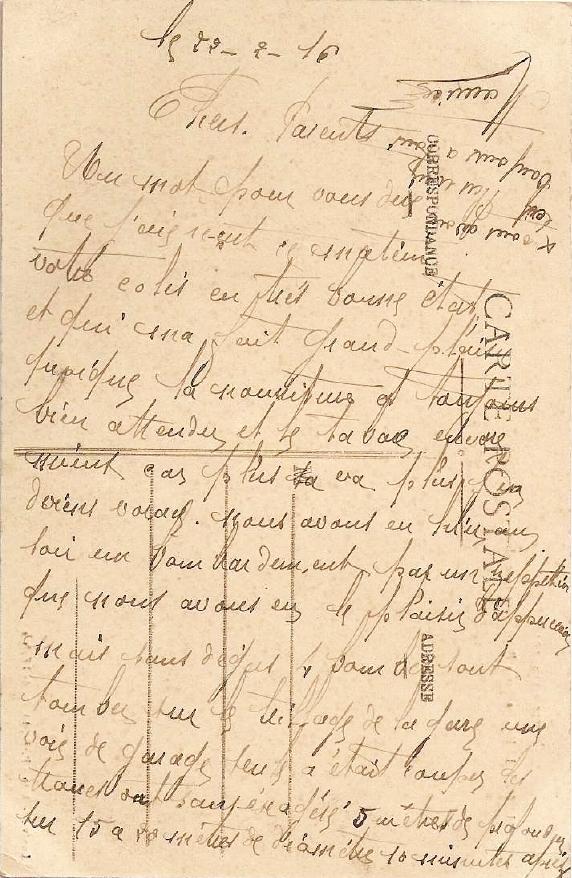 le 22-2-16
Chers Parents
Un mot pour vous dire
que j'ai reçut ce matin
votre colis en très bonne état
et qui ma fait grand plaisir
puisque la nourriture et toujours
bien attendu et le tabac encore
mieut car plus sa va plus on
deviens vorace. nous avons eu hier au
soir un bombardement par un zeppelin
que nous avons eu le plaisir d'appercevoir
mais sans dégat 4 bombe sont
tomber sur le village de la gare une
voie de garage seule a était coupée les
trous sont 5 mètres de profond
sur 15 a 20 mètres de diamètre 10 minutes après
Maurice
CORRESPONDANCE
CARTE POSTALE
ADRESSE